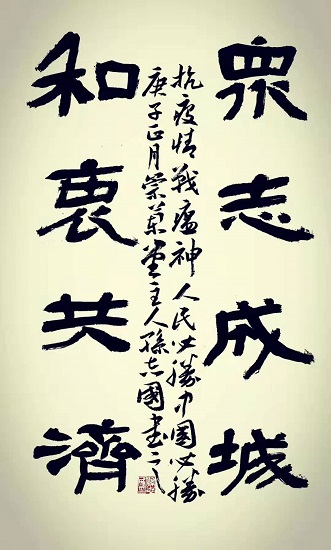 眾志成城
抗疫情戰瘟神人民必勝中國必勝
庚子正月崇蘭堂主人孫志國書之
和衷共濟